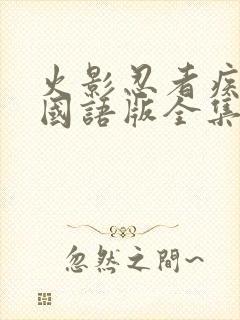 火影忍者疾
國語版全集
忽然之間~